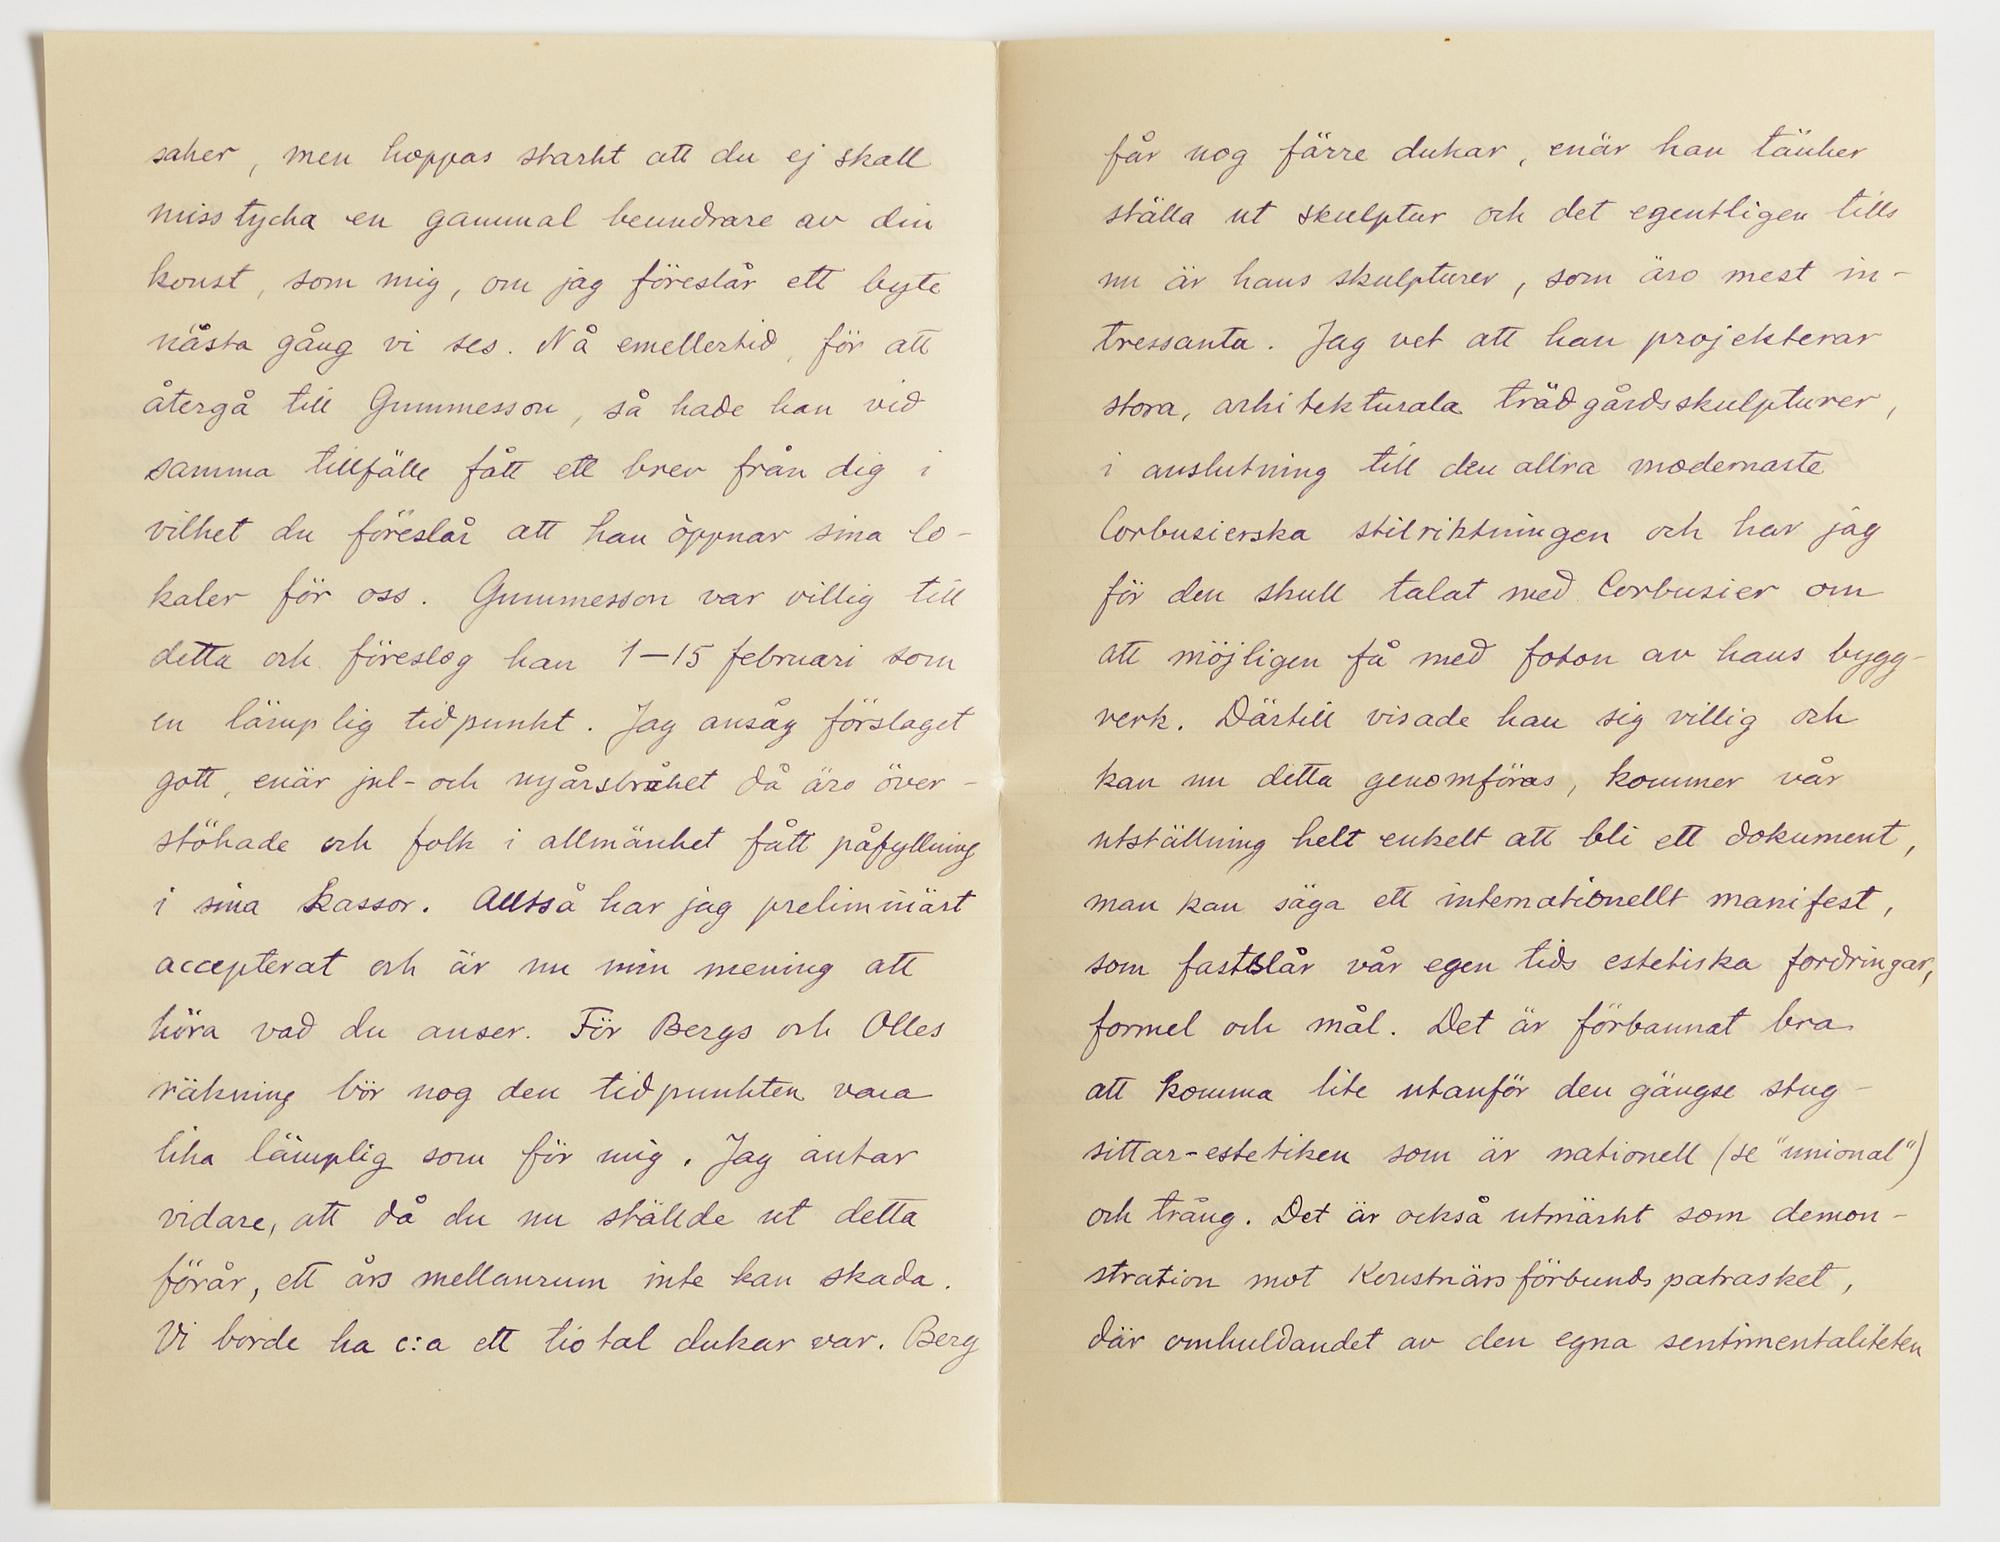 saker, men hoppas starkt att du ej skall
misstycka en gammal beundrare av din
konst, som mig, om jag föreslår ett byte
nästa gång vi ses. Nå emellertid, för att
återgå till Gummesson, så hade han vid
samma tillfälle fått ett brev från dig i
vilket du föreslår att han öppnar sina lo-
kaler för oss. Gummesson var villig till
detta och föreslog han 1–15 februari som
en lämplig tidpunkt. Jag ansåg förslaget
gott, enär jul- och nyårsbråket då äro över-
stökade och folk i allmänhet fått påfyllning
i sina kassor. Alltså har jag preliminärt
accepterat och är nu min mening att
höra vad du anser. För Bergs och Olles
räkning bör nog den tidpunkten vara
lika lämplig som för mig. Jag antar
vidare, att då du nu ställde ut detta
förår, ett års mellanrum inte kan skada.
Vi borde ha c:a ett tiotal dukar var. Berg
får nog färre dukar, enär han tänker
ställa ut skulptur och det egentligen tills
nu är hans skulpturer, som äro mest in-
tressanta. Jag vet att han projekterar
stora, arkitekturala trädgårdsskulpturer,
i anslutning till den allra modernaste
Corbusierska stilriktningen och har jag
för den skull talat med Corbusier om
att möjligen få med foton av hans bygg-
verk. Därtill visade han sig villig och
kan nu detta genomföras, kommer vår
utställning helt enkelt att bli ett dokument,
man kan säga ett internationellt manifest,
som fastslår vår egen tids estetiska fordringar,
formel och mål. Det är förbannat bra
att komma lite utanför den gängse stug-
sittar-estetiken som är nationell (se "unional")
och trång. Det är också utmärkt som demon-
stration mot Konstnärsförbundspatrasket,
där omhuldandet av den egna sentimentaliteten